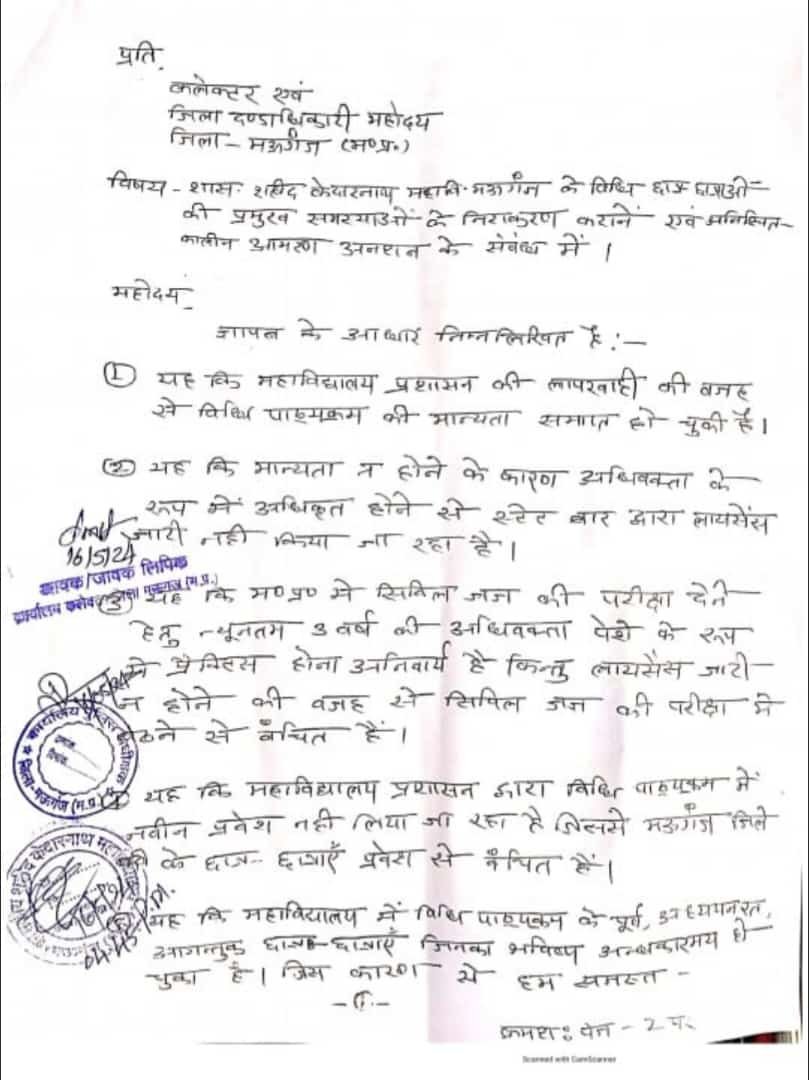 प्रति,
कलेक्टर एवं
जिला दण्डाधिकारी महोदय
जिला - मऊगंज (म०प्र०)
विषय - शास. शहीद केदारनाथ महावि. मऊगंज के विधि छात्र छात्राओं
की प्रमुख समस्याओं के निराकरण कराने एवं अनिश्चित-
कालीन आमरण अनशन के संबंध में ।
महोदय,
ज्ञापन के आधार निम्नलिखित है :-
① यह कि महाविद्यालय प्रशासन की लापरवाही की वजह
से विधि पाठ्यक्रम की मान्यता समाप्त हो चुकी है।
② यह कि मान्यता न होने के कारण अधिवक्ता के
रूप में अधिकृत होने से स्टेट बार द्वारा लायसेंस
जारी नहीं किया जा रहा है।
16/5/24
आवक/जावक लिपिक
③ यह कि म०प्र० में सिविल जज की परीक्षा देने
हेतु न्यूनतम 3 वर्ष की अधिवक्ता पेशे के रूप
में प्रैक्टिस होना अनिवार्य है किन्तु लायसेंस जारी
न होने की वजह से सिविल जज की परीक्षा में
बैठने से वंचित हैं।
कार्यालय पुलिस अधीक्षक
जिला-मऊगंज (म.प्र.)
④ यह कि महाविद्यालय प्रशासन द्वारा विधि पाठ्यक्रम में
नवीन प्रवेश नहीं लिया जा रहा है जिससे मऊगंज जिले
के छात्र-छात्राएँ प्रवेश से वंचित हैं।
शहीद केदारनाथ
⑤ यह कि महाविद्यालय में विधि पाठ्यक्रम के पूर्व, अध्ययनरत,
आगन्तुक छात्र-छात्राएँ जिनका भविष्य अन्धकारमय हो
चुका है। जिस कारण से हम समस्त -
-1-
क्रमशः पेज - 2 पर
Scanned with CamScanner